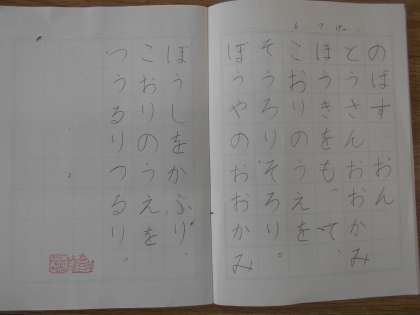 のばす おん
とうさん おおかみ
ほうきをもって、
こおりのうえを
そうろりそろり。
ぼうやのおおかみ
ぼうしをかぶり、
こおりのうえを
つうるりつるり。